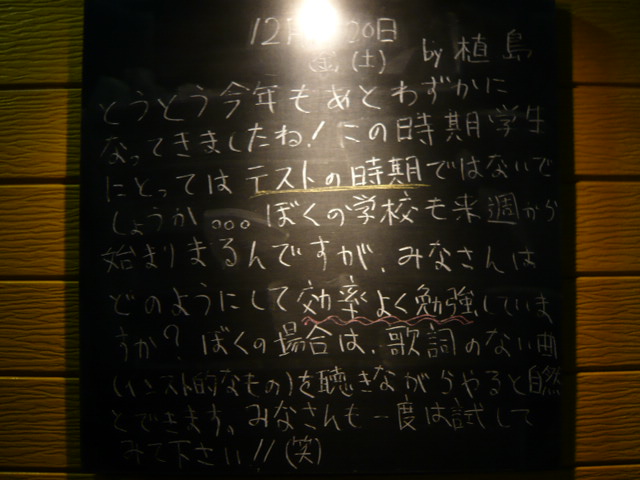 12月 20日
(土) by 植島
とうとう今年もあとわずかに
なってきましたね!この時期学生
にとってはテストの時期ではないで
しょうか。。。ぼくの学校も来週から
始まりまるんですが、みなさんは
どのようにして効率よく勉強していま
すか?ぼくの場合は、歌詞のない曲
(インスト的なもの)を聴きながらやると自然
とできます。みなさんも一度は試して
みて下さい!!(笑)